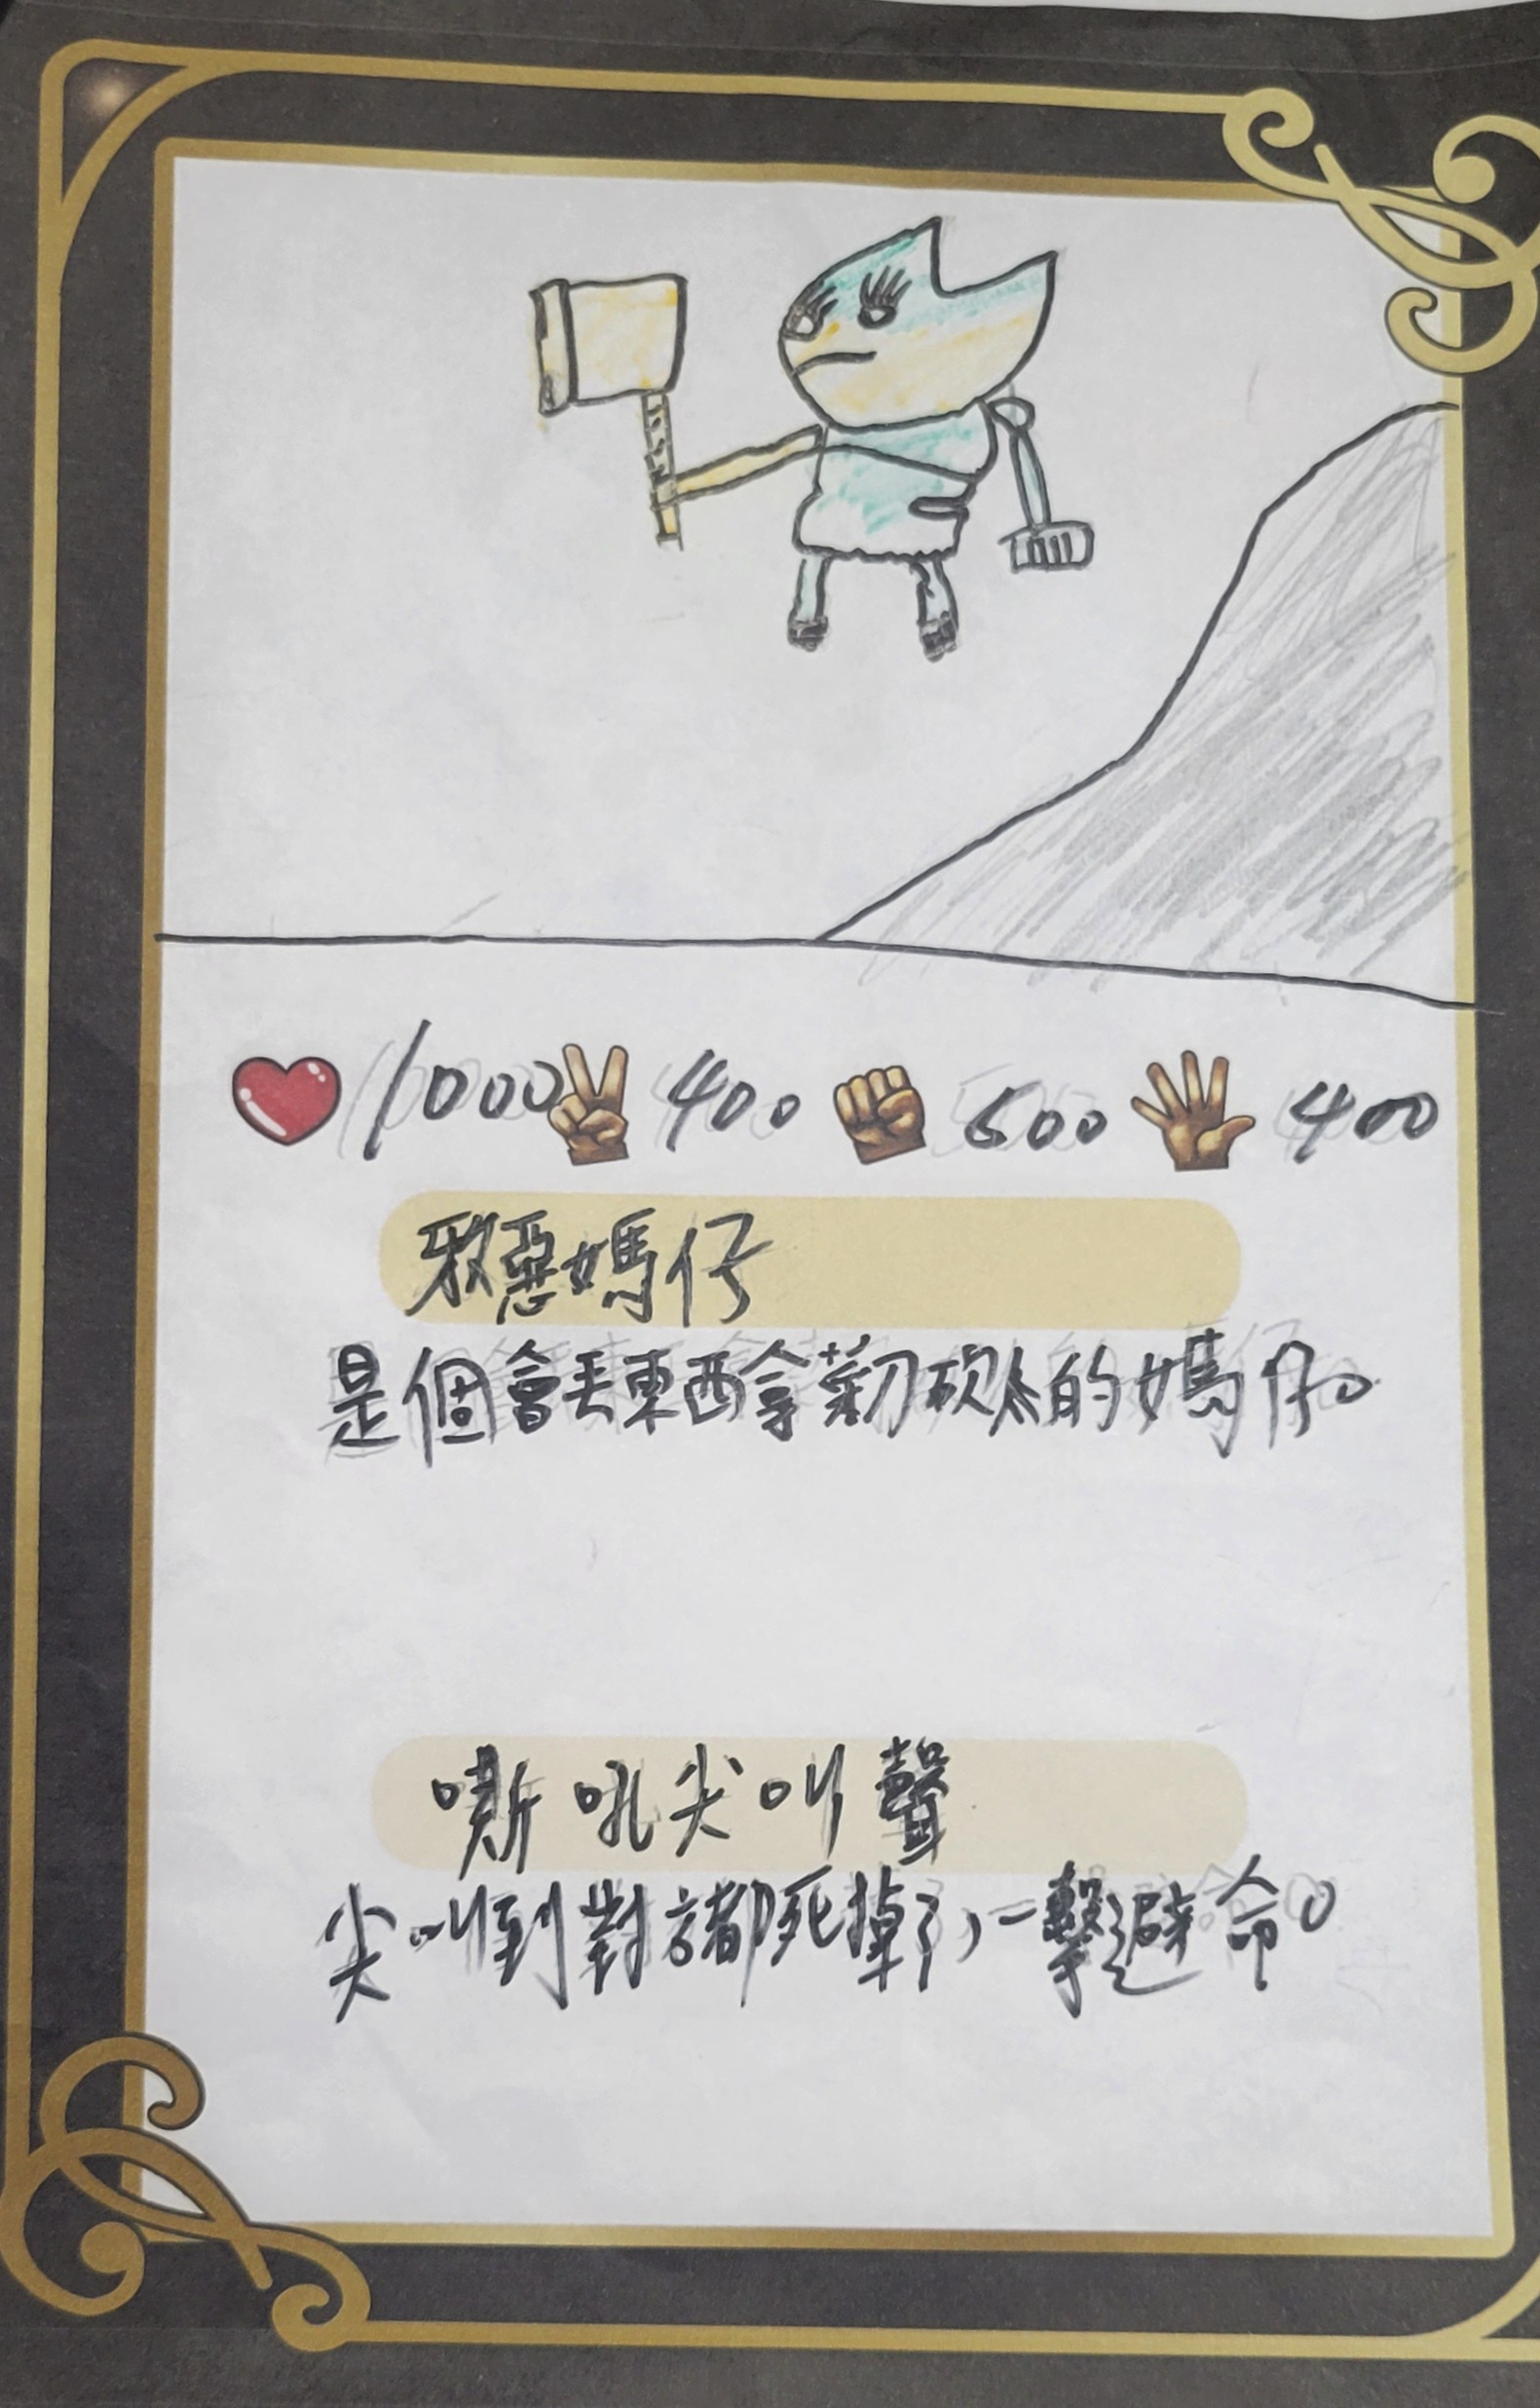 1000 400 500 400
邪惡媽仔
是個會丟東西拿菜刀砍的媽仔。
嘶吼尖叫聲
尖叫到對都死掉了,一擊避命。